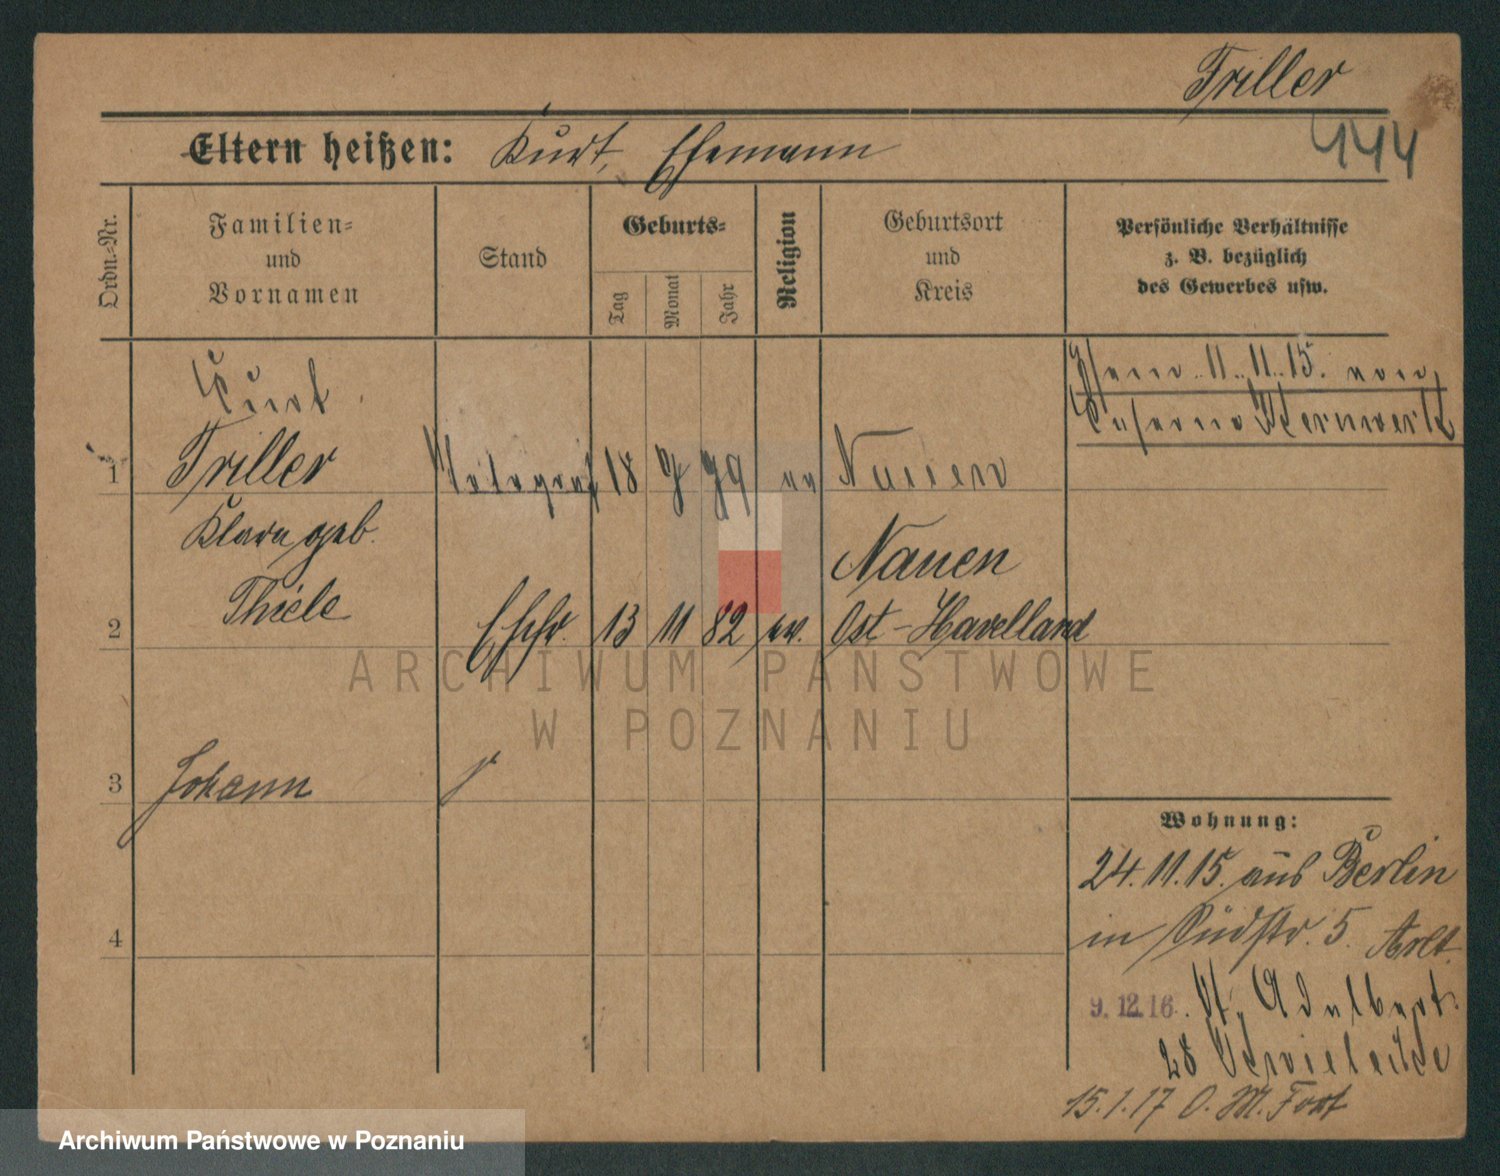 Triller
444
Eltern heißen: Kurt, Ehemann
Ordn.-Nr.
Familien-
und
Vornamen
Stand
Geburts-
Tag
Monat
Jahr
Religion
Geburtsort
und
Kreis
Persönliche Verhältnisse
z. B. bezüglich
des Gewerbes usw.
11.11.15. von
Kernwerk
Kurt
1 Triller 18 7 79 ev Nauen
Klara geb.
Thiele
Nauen
2 Ehefr. 13 11 82 ev. Ost-Havelland
3 Johann
4
Wohnung:
24.11.15. aus Berlin
in Südstr. 5.
9. 12. 16. St. Adalbert.
28
15.1.17 O. M. Fort
ARCHIWUM PAŃSTWOWE
W POZNANIU
Archiwum Państwowe w Poznaniu